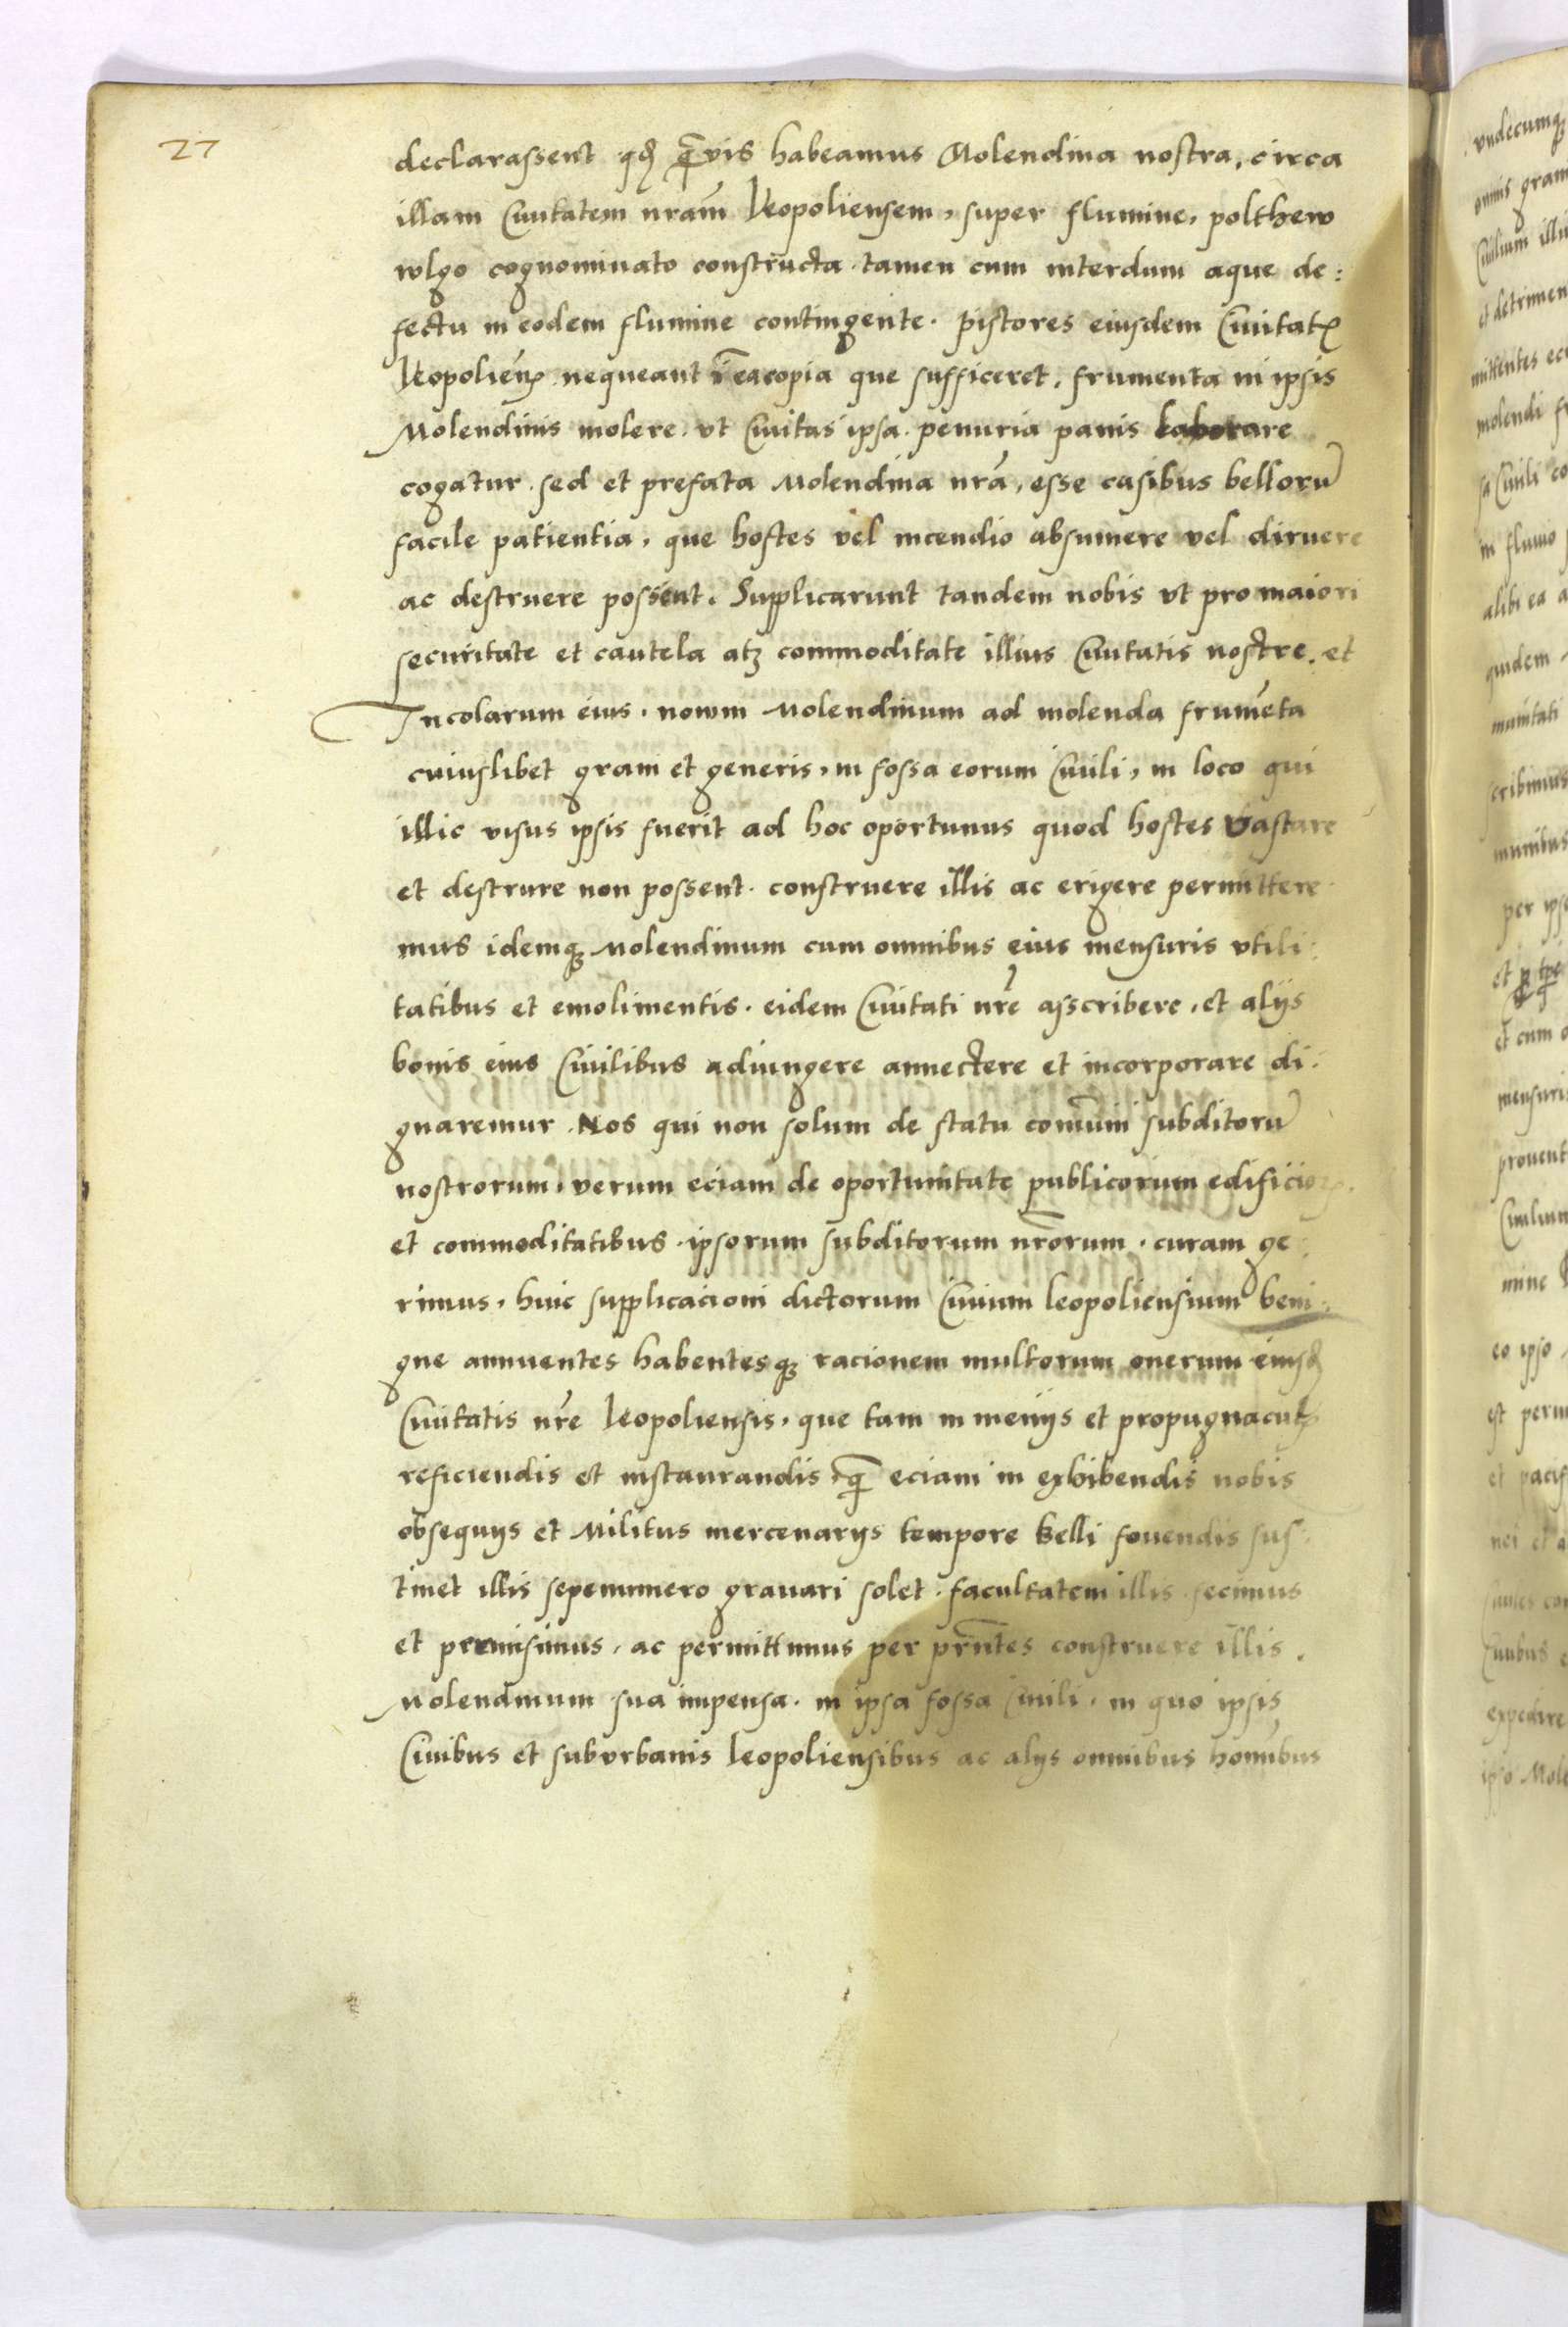 27
declarassent qd quis habeamus Molendina nostra, circa
illam Ciuitatem nram Leopoliensem, super flumine, polthew
wlgo cognominato constructa tamen cum interdum aque de:
fectu in eodem flumine contingente. Pistores eiusdem Ciuitat
Leopolien nequeant i ea copia que sufficeret, frumenta in ipsis
Molendinis molere. vt Ciuitas ipsa. penuria panis laborare
cogatur. sed et prefata Molendina nra, esse casibus belloru
facile patientia, que hostes vel incendio absumere vel diruere
ac destruere possent. Supplicarunt tandem nobis vt pro maiori
securitate et cautela atq commoditate illius Ciuitatis nostre. et
Incolarum eius. nowm Molendinum ad molenda frumeta
cuiuslibet grani et generis, in fossa eorum Ciuili, in loco qui
illic visus ipsis fuerit ad hoc oportunus quod hostes vastare
et destrure non possent. construere illis ac erigere permittere
mus idemq Molendinum cum omnibus eius mensuris vtili:
tatibus et emolimentis. eidem Ciuitati nre asscribere, et alijs
bonis eius Ciuilibus adiungere annectere et incorporare di:
gnaremur. Nos qui non solum de statu comuni subditoru
nostrorum, verum eciam de oportunitate publicorum edificior
et commoditatibus. ipsorum subditorum nrorum. curam ge:
rimus, huic supplicacioni dictorum Ciuium leopoliensium beni:
gne annuentes habentesq racionem multorum onerum eiusd
Ciuitatis nre leopoliensis, que tam in menijs et propugnacul
reficiendis et instaurandis q eciam in exhibendis nobis
obsequijs et Militus mercenarijs tempore belli fouendis sus:
tinet illis sepenumero grauari solet. facultatem illis fecimus
et premisimus, ac permittimus per prntes construere illis.
Molendinum sua impensa. in ipsa fossa Ciuili. in quo ipsis
Ciuibus et suburbanis leopoliensibus ac alijs omnibus hominibus
vndecumq
omnis gram
Ciuilium illi
et detrimen
mittentes
molendi
sa Ciuili co
in fluuio
alibi ea a
quidem
munitati
scribimus
munibus
per ips
et
et cum
mensuris
prouent
Ciuilium
mine
eo ipso
est perm
et pacif
nei et a
Ciuibus
expedire
ipso Mole